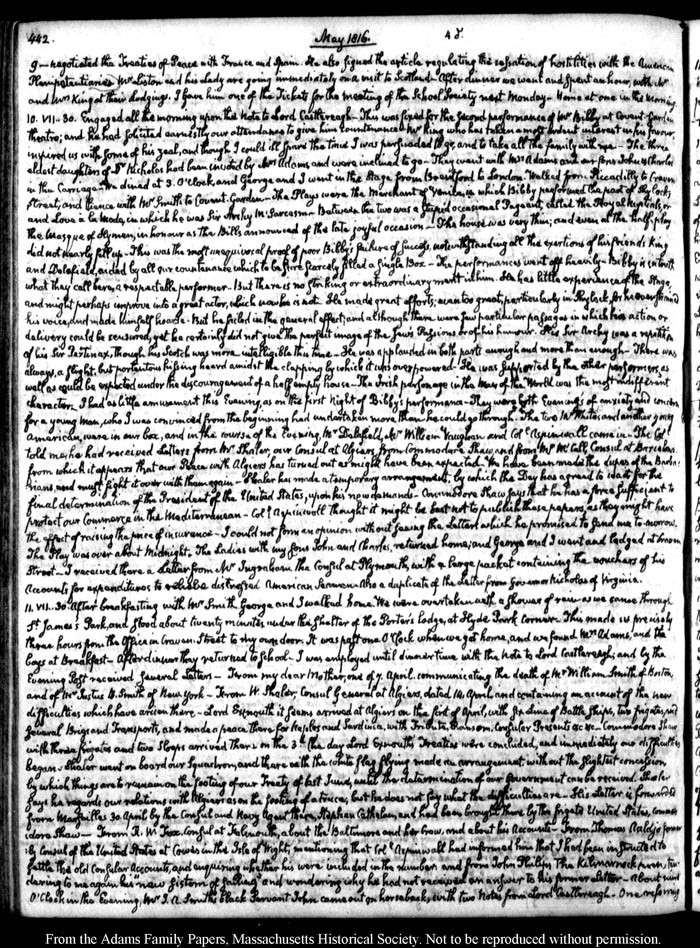 442.
May 1816.
45.
9 — negotiated the Treaties of Peace with France and Spain. He also signed the article regulating the cessation of hostilities with the American
Plenipotentiaries. Mr Liston and his Lady are going immediately on a visit to Scotland. After dinner we went and spent an hour, with Mr
and Mrs King at their Lodgings. I gave him one of the Tickets for the meeting of the School Society next Monday — Home at one in the Morning.
10. VII.-30. Engaged all the morning upon the Note to Lord Castlereagh — This was fixed for the second performance of Mr Bibby at Covent Garden
theatre; and he had solicited earnestly our attendance to give him countenance. Mr King who has taken a most ardent interest in his favour,
inspired us with some of his zeal, and though I could ill spare the time I was persuaded to go, and to take all the family with me — The three
eldest daughters of Dr Nicholas had been invited by Mrs Adams and were inclined to go — They went with Mrs Adams and our sons John & Charles
in the Carriage. We dined at 3. O'Clock, and George and I went in the Stage from Brentford to London. Walked from Piccadilly to Craven
Street; and thence with Mr Smith to Covent Garden — The Plays were the Merchant of Venice, in which Bibby performed the part of Shylock;
and Love à la Mode, in which he was Sir Archy McSarcasm. Between the two was a stupid occasional Pageant, called the Royal Nuptials, or
the Masque of Hymen, in honour as the Bills announced of the late joyful occasion — The house was very thin; and even at the half-play
did not nearly fill up — This was the most unequivocal proof of poor Bibby's failure of success, notwithstanding all the exertions of his friends King
and Delafield, aided by all our countenance which to be sure scarcely filled a single Box — The performances went off heavily — Bibby is in truth
what they call here, a respectable performer — But there is no striking or extraordinary merit in him. He has little experience of the Stage,
and might perhaps improve into a great actor, which now he is not. He made great efforts; even too great, particularly in Shylock, for he overstrained
his voice, and made himself hoarse. But he failed in the general effect; and although there were few particular passages in which his action or
delivery could be censured, yet he certainly did not give the perfect image of the Jew's Passions or of his humour. His Sir Archy was a repetition
of his Sir Pertinax, though his Scotch was more intelligible this time — He was applauded in both parts enough and more than enough — There was
always, a slight, but portentous hissing heard amidst the clapping by which it was overpowered — He was supported by the other performers, as
well as could be expected under the discouragement of a half empty house — The Irish personage in the Man of the World was the most indifferent
character. I had as little amusement this Evening, as on the first night of Bibby's performance — They were both Evenings of anxiety and concern
for a young man, who I was convinced from the beginning had undertaken more than he could go through. The two Mr Whites, and another young
American, were in our box, and in the course of the Evening, Mr Delafield, Mr William Vaughan and Col. Aspinwall came in — The Col.
told me he had received Letters from Mr Shaler, our Consul at Algiers, from Commodore Shaw, and from Mr McCall, Consul at Barcelona.
from which it appears that our Peace with Algiers has turned out as might have been expected. We have been made the dupes of the Barba-
rians, and must fight it over with them again — Shaler has made a temporary arrangement, by which the Dey has agreed to wait for the
final determination of the President of the United States, upon his new demands — Commodore Shaw says that he has a force sufficient to
protect our Commerce in the Mediterranean — Col. Aspinwall thought it might be best not to publish these papers, as they might have
the effect of raising the price of insurance — I could not form an opinion without seeing the Letters which he promised to send me to-morrow.
The Play was over about Midnight. The Ladies with my sons John and Charles, returned home; and George and I went and lodged at Craven
Street — I received there a Letter from Mr Ingraham the Consul at Plymouth, with a large packet containing the vouchers of his
Accounts for expenditures to relieve distressed American Seamen. Also a duplicate of the Letter from Governor Nicholas of Virginia.
11. VII.-30. After breakfasting with Mr Smith, George and I walked home. We were overtaken with a shower of rain as we came through
St James's Park, and stood about twenty minutes under the shelter of the Porter's lodge, at Hyde Park Corner. This made us precisely
three hours from the Office in Craven Street to my own door. It was past one O'Clock when we got home, and we found Mrs Adams, and the
boys at Breakfast — After dinner they returned to School — I was employed until dinner time with the Note to Lord Castlereagh; and by the
Evening Post received several Letters — From my dear Mother, one of 9. April. communicating the death of Mr William Smith of Boston,
and of Mr Justus B. Smith of New York — From W. Shaler, Consul General at Algiers, dated 14 April and containing an account of the new
difficulties which have arisen there — Lord Exmouth it seems arrived at Algiers on the first of April, with six Line of Battle Ships, two frigates and
several Brigs and Transports, and made a peace there for Naples and Sardinia, with Tribute, Ransom, Consular Presents &c &c — Commodore Shaw
with three frigates and two Sloops arrived there on the 3d the day Lord Exmouth's Treaties were concluded, and immediately our difficulties
began. Shaler went on board our Squadron, and there with the white flag flying made an arrangement, without the slightest concession,
by which things are to remain on the footing of our Treaty of last June, until the determination of our Government can be received. Shaler
says he regards our relations with Algiers as on the footing of a truce; but he does not say what the difficulties are — His Letter is forwarded
from Marseilles 30 April by the Consul and Navy Agent there, Stephen Cathalan, and had been brought there by the frigate United States, Commo-
dore Shaw — From R. W. Fox, Consul at Falmouth, about the Baltimore and her Crew, and about his Accounts — From Thomas Auldjo former-
ly Consul of the United States at Cowes in the Isle of Wight, mentioning that Col. Aspinwall had informed him that I had been instructed to
settle the old Consular Accounts, and inquiring whether his were included in the number. and from John Philip, The Kilmarnock
daring to me again his new System of Sailing and wondering why he had not received an answer to his former Letter — About nine
O'Clock in the Evening, Mr J. A. Smith's black Servant John came out on horseback, with two Notes from Lord Castlereagh — One referring
From the Adams Family Papers, Massachusetts Historical Society. Not to be reproduced without permission.